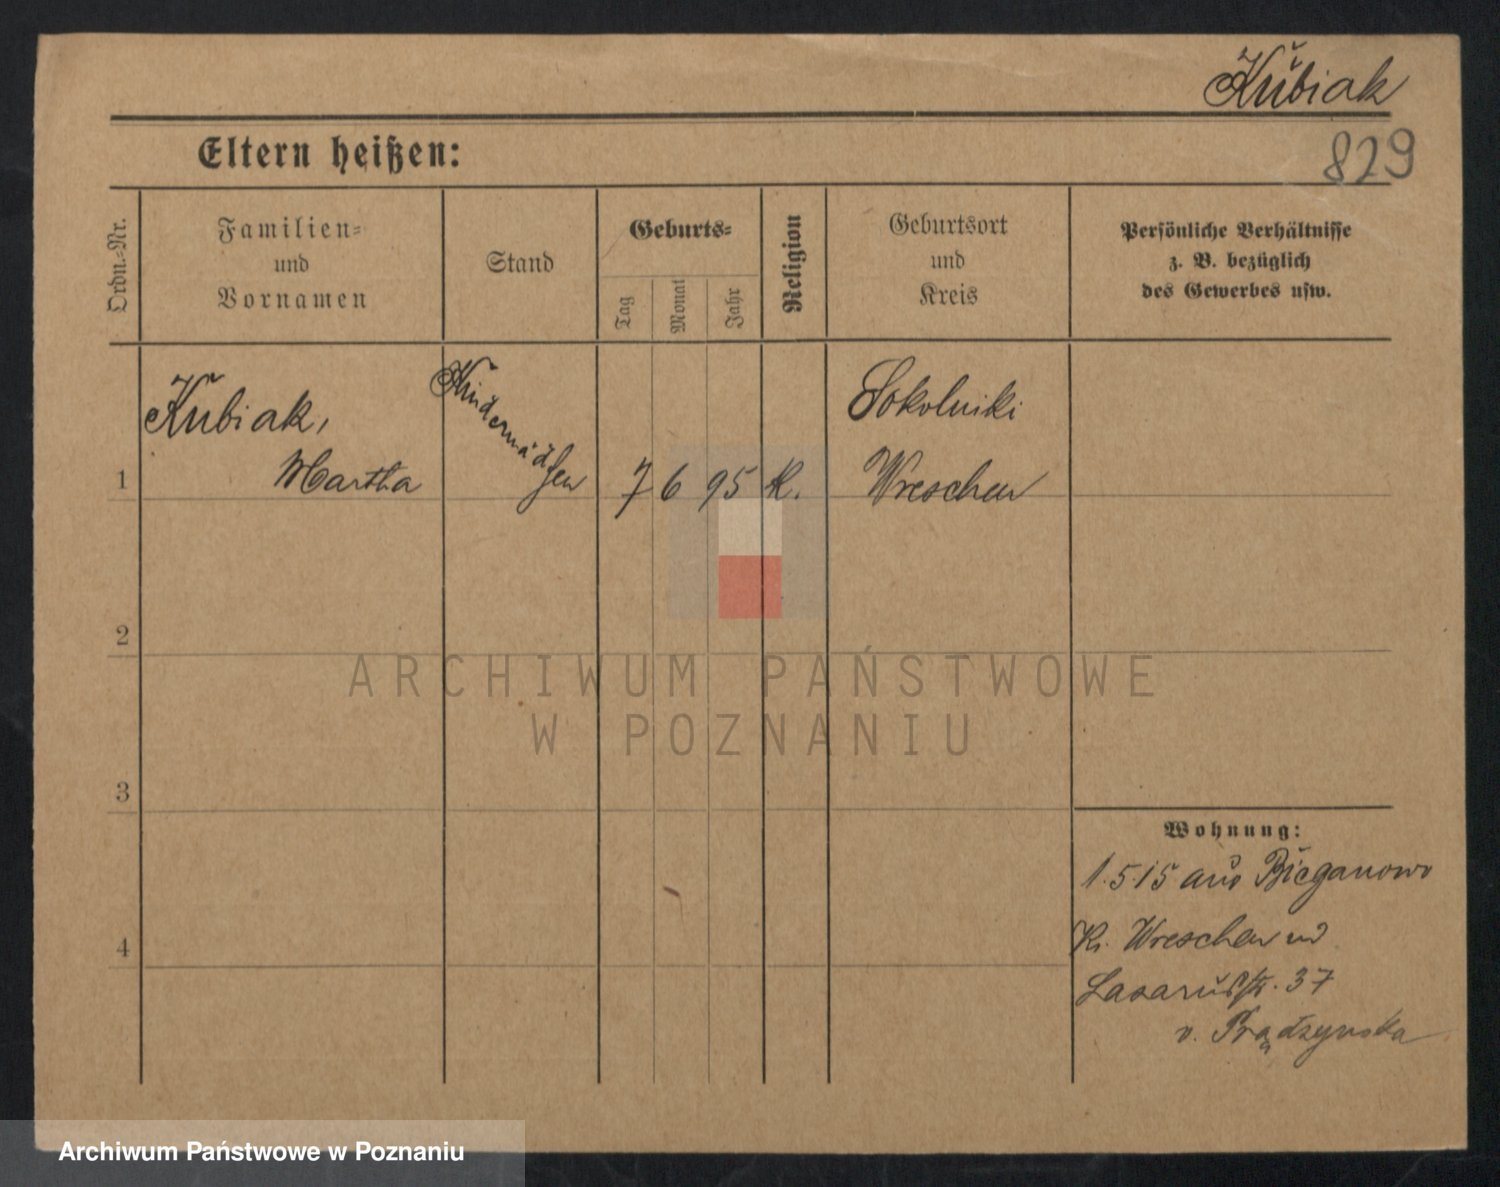 Kubiak
829
Eltern heißen:
Ordn.-Nr.
Familien-
und
Vornamen
Stand
Geburts-
Tag
Monat
Jahr
Religion
Geburtsort
und
Kreis
Persönliche Verhältnisse
z. B. bezüglich
des Gewerbes usw.
1
Kubiak,
Martha
Kindermädchen
7 6 95 K.
Sokolniki
Wreschen
2
3
4
ARCHIWUM PAŃSTWOWE
W POZNANIU
Wohnung:
1.5.15 aus Bieganowo
Kr. Wreschen
Lazarusstr. 37
v. Prądzynska
Archiwum Państwowe w Poznaniu